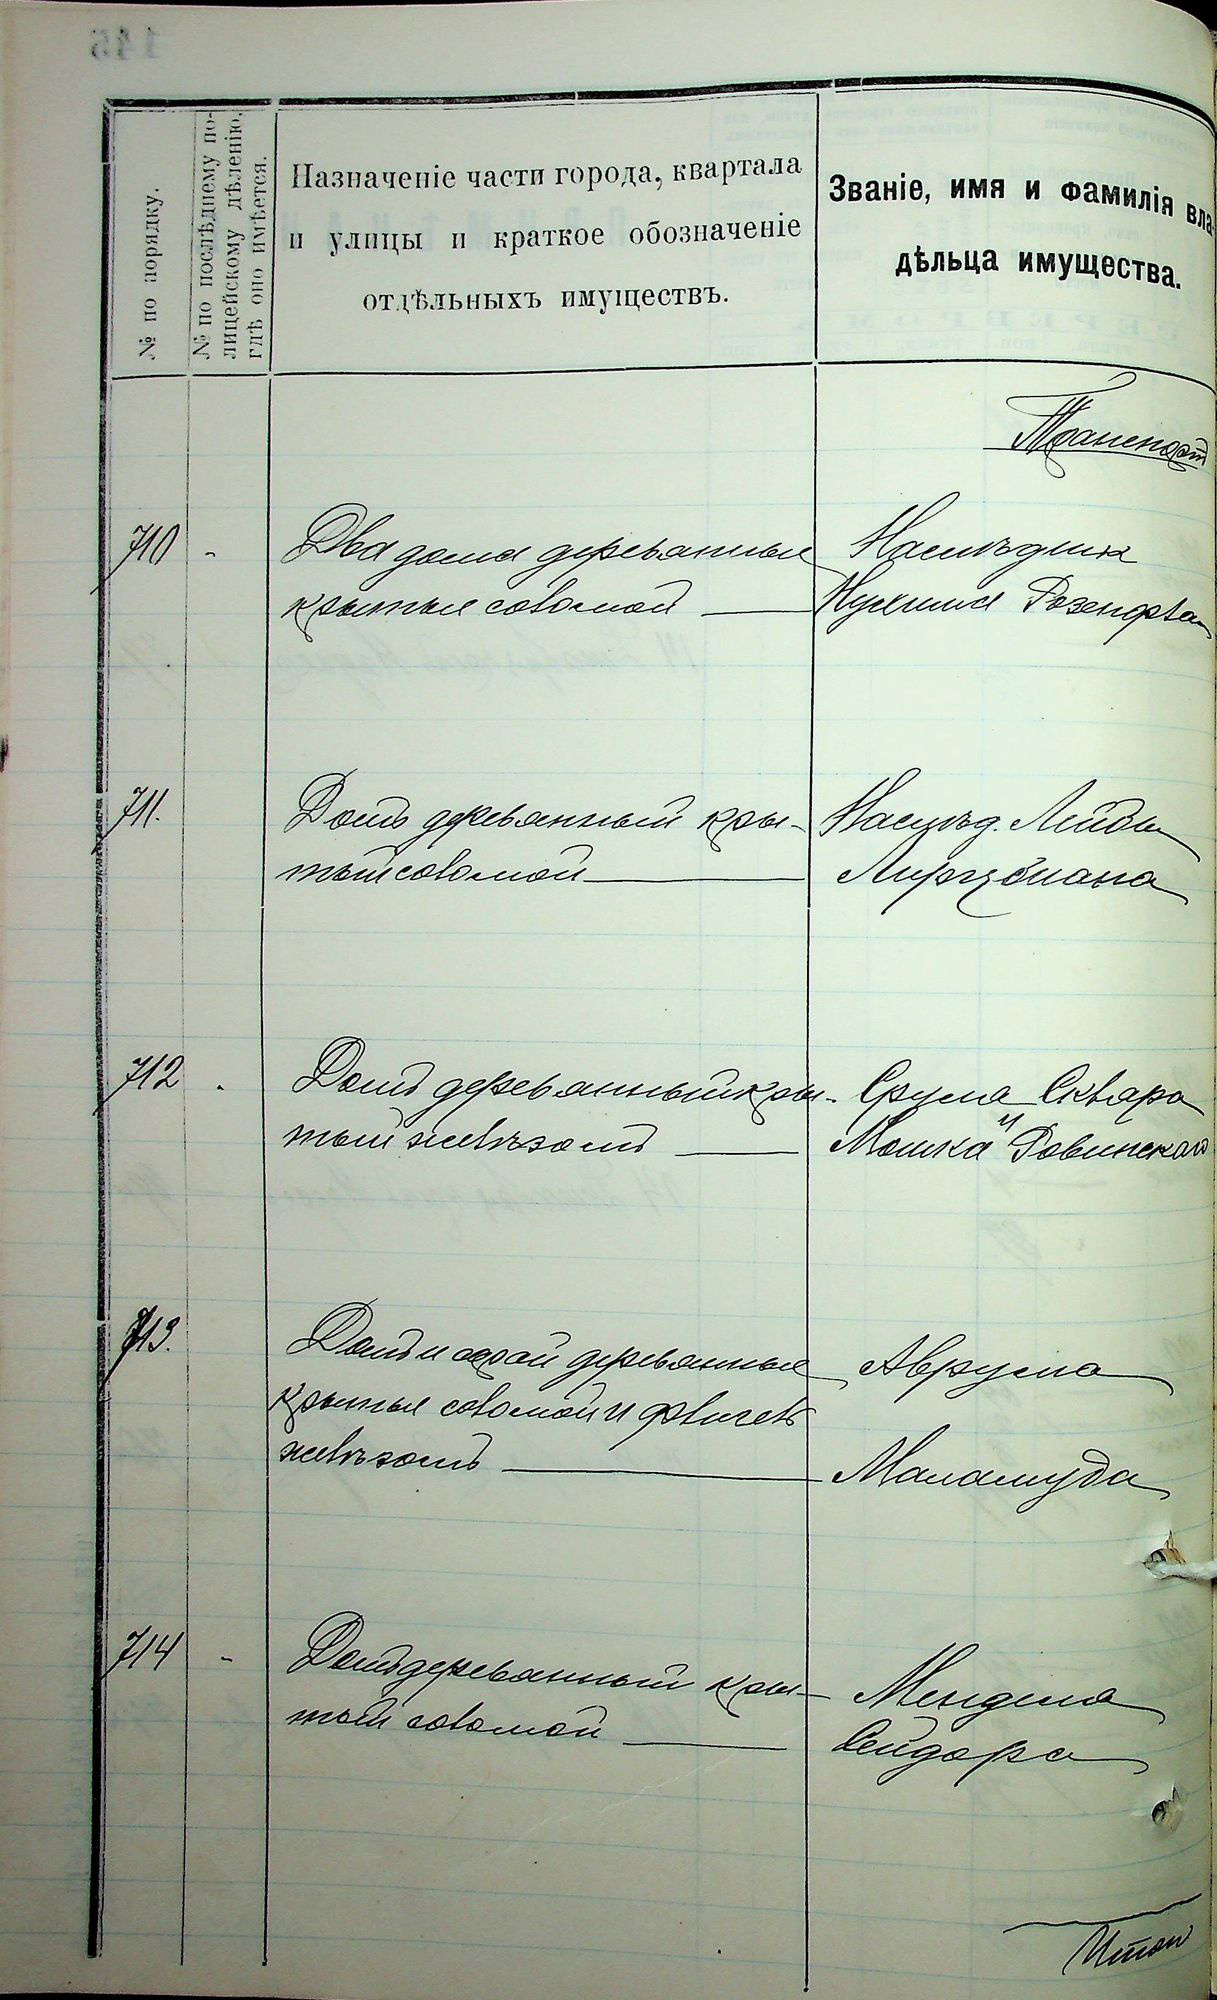 № по порядку.
№ по послѣднему по-
лицейскому дѣленію,
гдѣ оно имѣется.
Назначеніе части города, квартала
и улицы и краткое обозначеніе
отдѣльныхъ имуществъ.
Званіе, имя и фамилія вла-
дѣльца имущества.
Транспорт
710 - Два дома деревянные
крытые соломой
Наслѣдник
Розенфел
711. Домъ деревянный кры-
тый соломой
Наслѣд. Лейбы
712 . Домъ деревянный кры-
тый желѣзомъ
Срула Сквара
и
Мошка Ровинскаго
713. Домъ и сарай деревянные
крытые соломой и флигель
желѣзомъ
Аврума
Маламуда
714 - Домъ деревянный кры-
тый соломой
Мендела
Сейдора
Итого